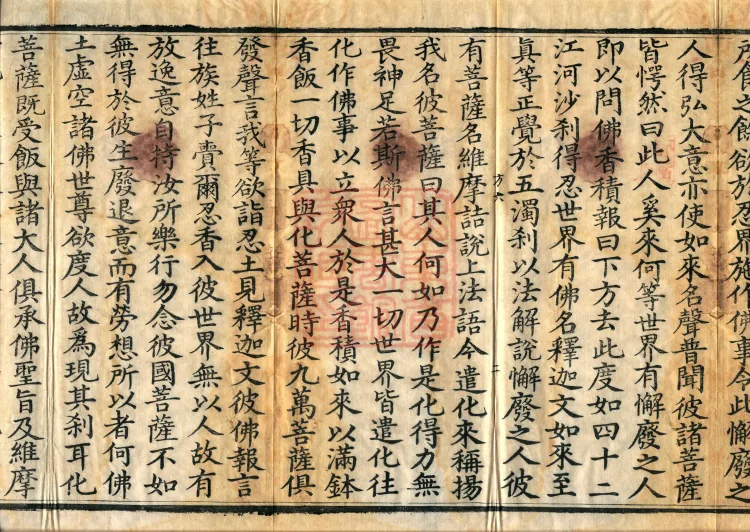 之餘欲於忍界施作佛事令此懈廢之
人得弘大意亦使如來名聲普聞彼諸菩薩
皆愕然曰此人奚來何等世界有懈廢之人
即以問佛香積報曰下方去此度如四十二
江河沙刹得忍世界有佛名釋迦文如來至
眞等正覺於五濁刹以法解說懈廢之人彼
方六 二
有菩薩名維摩詰說上法語今遣化來稱揚
我名彼菩薩曰其人何如乃作是化得力無
畏神足若斯佛言甚大一切世界皆遣化往
化作佛事以立衆人於是香積如來以滿鉢
香飯一切香具與化菩薩時彼九萬菩薩俱
發聲言我等欲詣忍土見釋迦文彼佛報言
往族姓子賫爾忍香入彼世界無以人故有
放逸意自持汝所樂行勿念彼國菩薩不如
無得於彼生廢退意而有勞想所以者何佛
土虛空諸佛世尊欲度人故爲現其刹耳化
菩薩既受飯與諸大人俱承佛聖旨及維摩